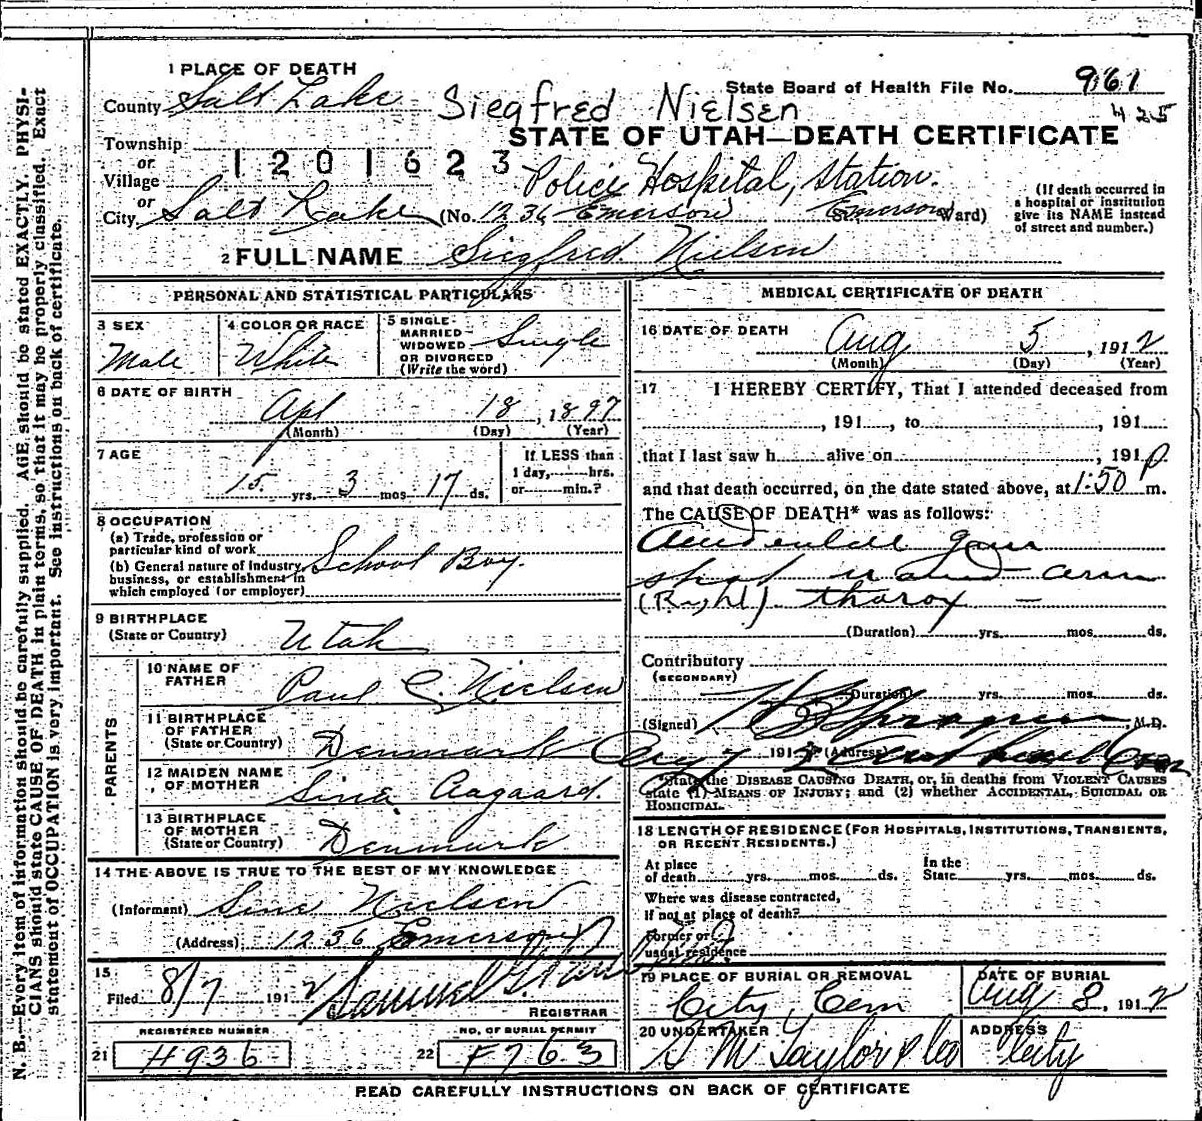 1 PLACE OF DEATH
County Salt Lake
Siegfred Nielsen
State Board of Health File No. 961
425
STATE OF UTAH—DEATH CERTIFICATE
Township
or
Village
1201623
Police Hospital, Station.
or
City Salt Lake (No. 1236 Emerson Emerson Ward)
(If death occurred in
a hospital or institution
give its NAME instead
of street and number.)
2 FULL NAME Siegfred Nielsen
PERSONAL AND STATISTICAL PARTICULARS
3 SEX
Male
4 COLOR OR RACE
White
5 SINGLE
MARRIED
WIDOWED
OR DIVORCED
(Write the word)
Single
6 DATE OF BIRTH
Apl 18, 1897
(Month) (Day) (Year)
7 AGE
15 yrs. 3 mos 17 ds.
If LESS than
1 day, hrs.
or min.?
8 OCCUPATION
(a) Trade, profession or
particular kind of work
School Boy.
(b) General nature of industry,
business, or establishment in
which employed (or employer)
9 BIRTHPLACE
(State or Country)
Utah
PARENTS
10 NAME OF
FATHER
Paul C. Nielsen
11 BIRTHPLACE
OF FATHER
(State or Country)
Denmark
12 MAIDEN NAME
OF MOTHER
Sine Aagaard.
13 BIRTHPLACE
OF MOTHER
(State or Country)
Denmark
14 THE ABOVE IS TRUE TO THE BEST OF MY KNOWLEDGE
(Informant) Sine Nielsen
(Address) 1236 Emerson
15
Filed 8/7 1912 Samuel G.
REGISTRAR
REGISTERED NUMBER
21 4936
NO. OF BURIAL PERMIT
22 F763
MEDICAL CERTIFICATE OF DEATH
16 DATE OF DEATH
Aug 5, 1912
(Month) (Day) (Year)
17 I HEREBY CERTIFY, That I attended deceased from
, 191 , to , 191
that I last saw h alive on , 191
and that death occurred, on the date stated above, at 1:50 P m.
The CAUSE OF DEATH* was as follows:
Accidental gun
shot wound arm
(Right) thorax —
(Duration) yrs. mos. ds.
Contributory
(SECONDARY)
(Duration) yrs. mos. ds.
(Signed) Sprague M.D.
Aug 7 191 (Address)
*State the DISEASE CAUSING DEATH, or, in deaths from VIOLENT CAUSES
state (1) MEANS OF INJURY; and (2) whether ACCIDENTAL, SUICIDAL OR
HOMICIDAL.
18 LENGTH OF RESIDENCE (FOR HOSPITALS, INSTITUTIONS, TRANSIENTS,
OR RECENT RESIDENTS.)
At place
of death yrs. mos. ds.
In the
State yrs. mos. ds.
Where was disease contracted,
If not at place of death?
Former or
usual residence
19 PLACE OF BURIAL OR REMOVAL
City Cem
DATE OF BURIAL
Aug 8, 1912
20 UNDERTAKER
S M Taylor & Co
ADDRESS
City
READ CAREFULLY INSTRUCTIONS ON BACK OF CERTIFICATE
N. B.—Every item of information should be carefully supplied. AGE should be stated EXACTLY. PHYSI-
CIANS should state CAUSE OF DEATH in plain terms, so that it may be properly classified. Exact
statement of OCCUPATION is very important. See instructions on back of certificate.